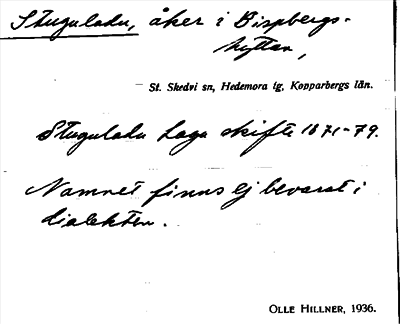 Stuguladu, åker i Bispbergs-
hyttan,
St. Skedvi sn, Hedemora tg, Kopparbergs län.
Stuguladu Laga skifte 1871-79.
Namnet finns ej bevarat i
dialekten.
OLLE HILLNER, 1936.